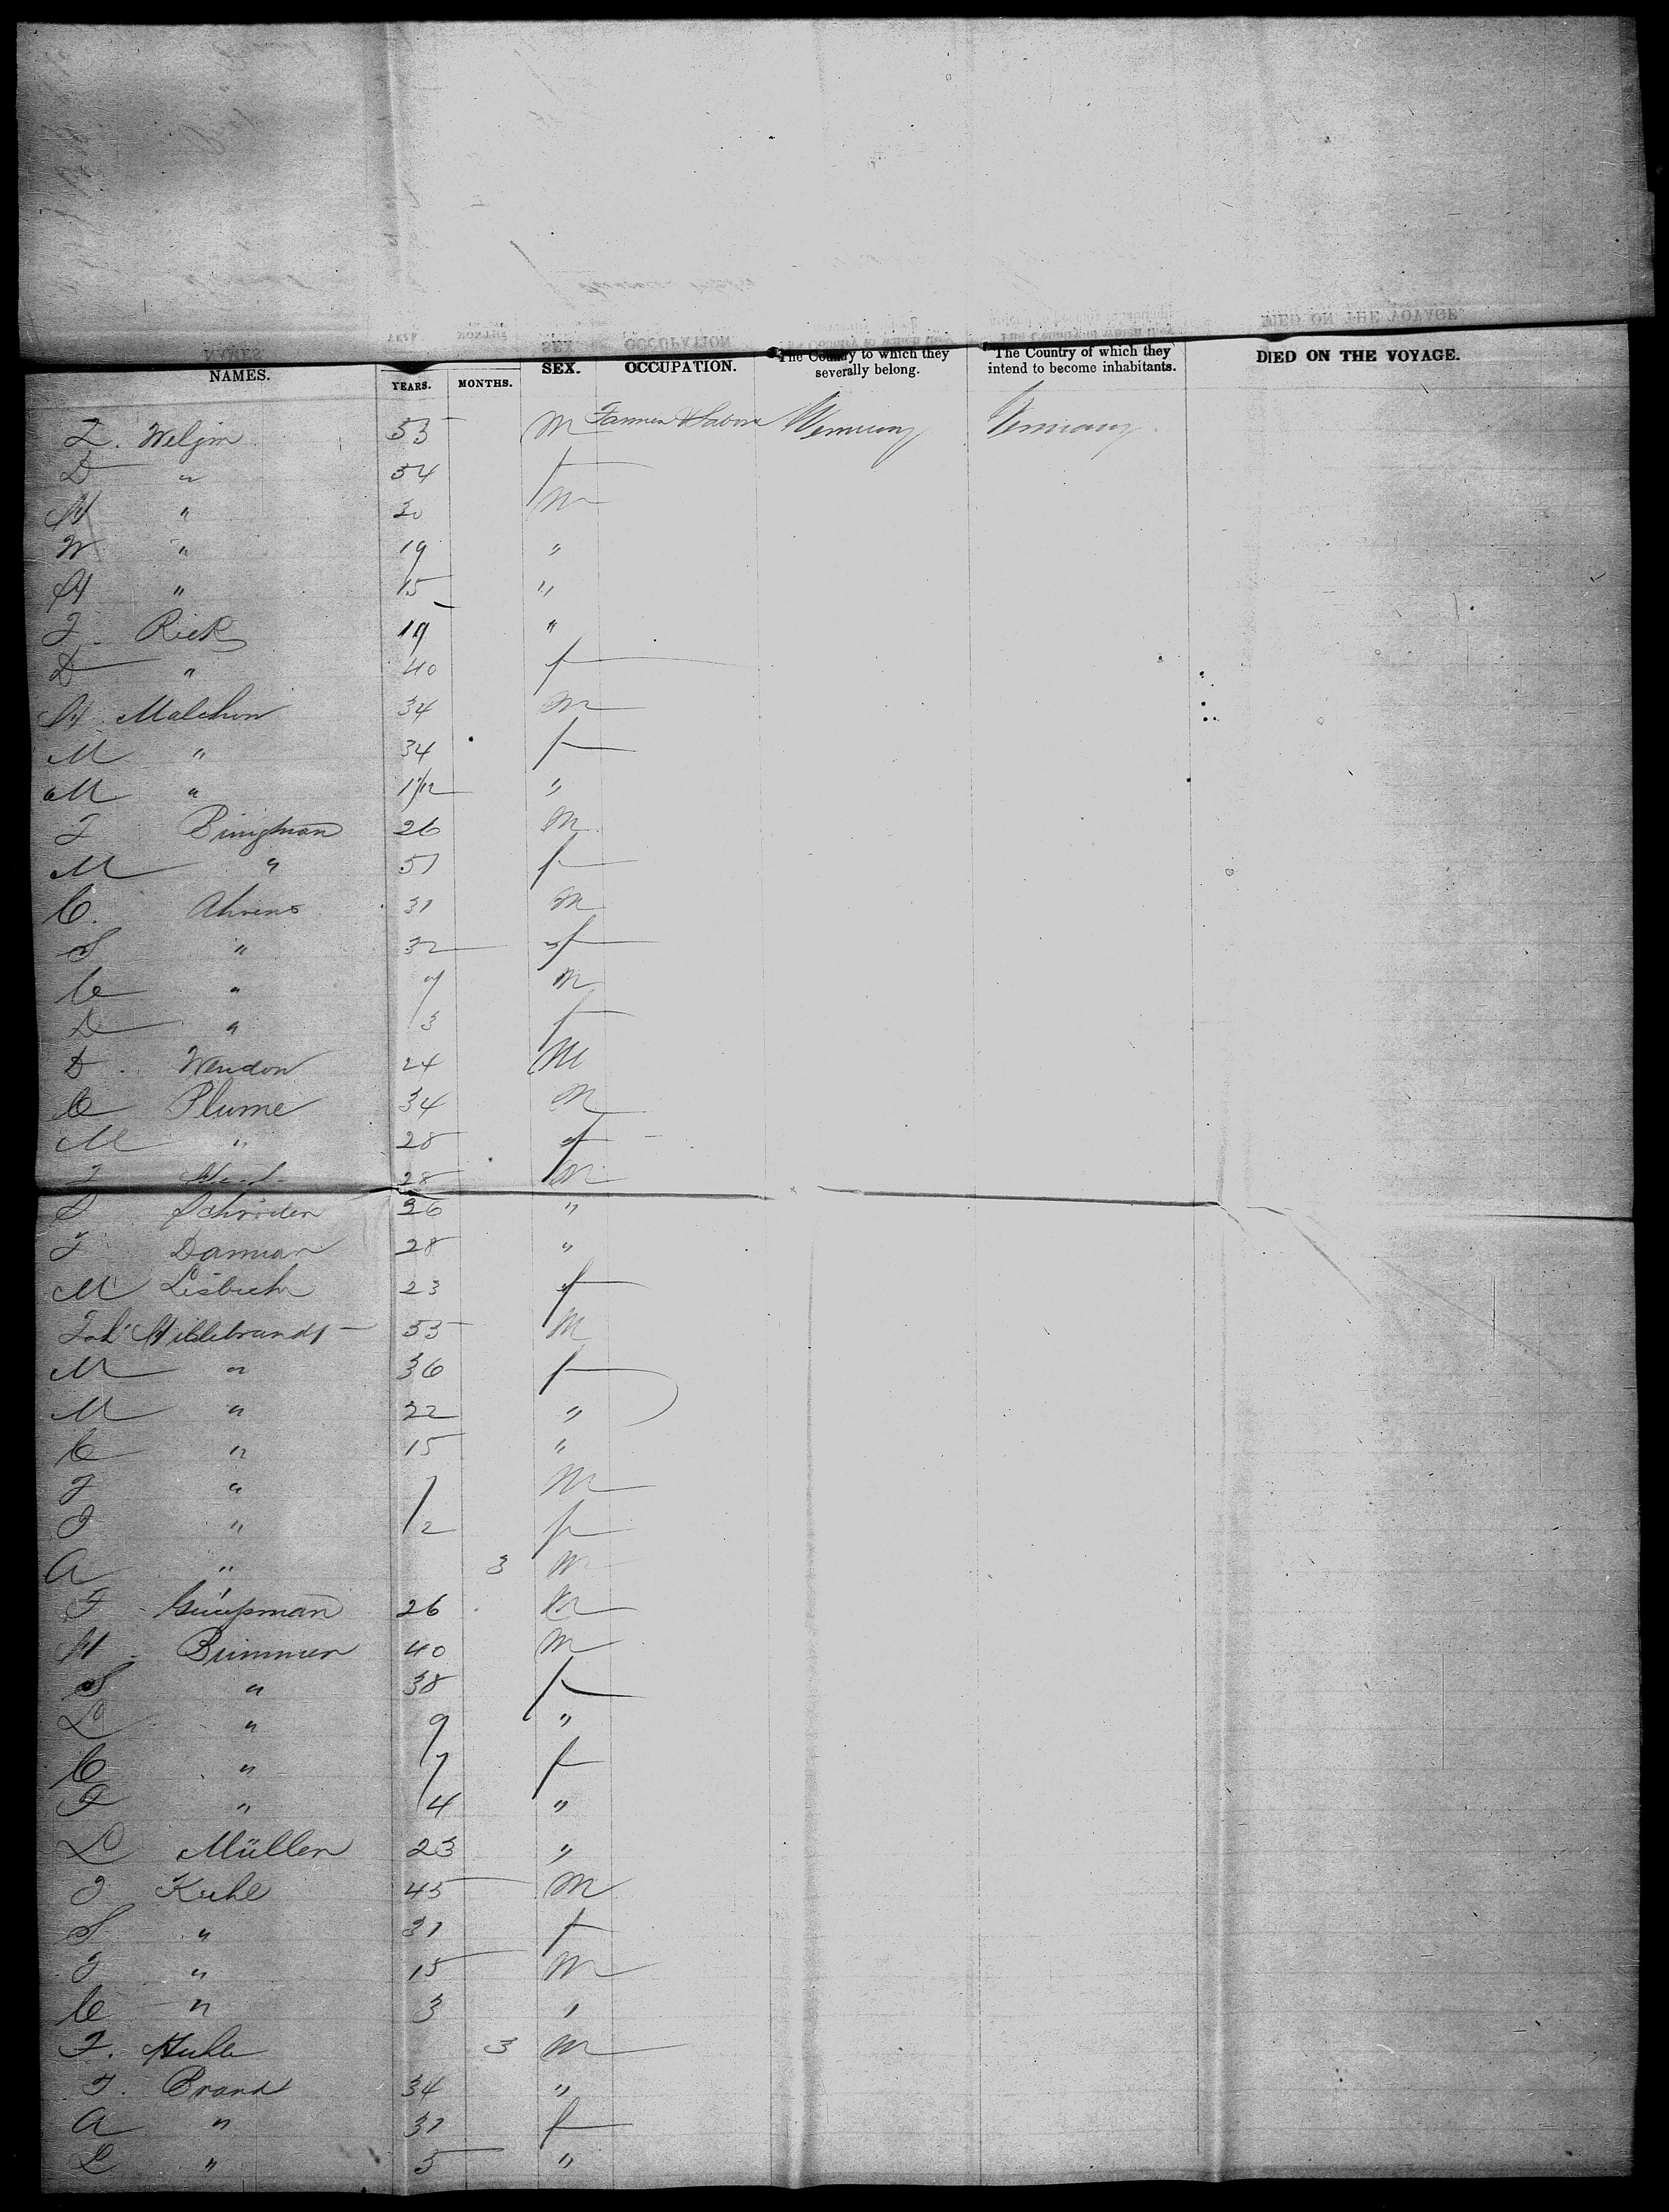 NAMES. YEARS. MONTHS. SEX. OCCUPATION. The Country to which they severally belong. The Country of which they intend to become inhabitants. DIED ON THE VOYAGE.
Weljin 53 M Farmer Germany Germany
D " 54 f
H " 20 M
W " 19 "
H " 15 "
J. Rick 19 "
D " 40 f
H. Malchow 34 M
M " 34 f
M " "
J Bringman 26 M
M " 51 f
C. Ahrens 31 M
S " 32 f
C " 7 M
D " 3 f
D. Wendon 24 M
C Plume 34 M
M " 28 f
28 M
Schröder 26 "
F Damian 28 "
M 23 f
Joh. Hildebrandt 53 M
M " 36 f
M " 22 "
C " 15 "
J " 7 M
J " 2 f
A " 3 M
F 26 M
H. Brimmer 40 M
S " 38 f
L " 9 "
C " 7 f
F " 4 "
L Müller 23 "
J Kuhl 45 M
S " 31 f
J " 15 M
C " 3 "
J. 3 M
J. Brand 34 "
A " 31 f
L " 5 "